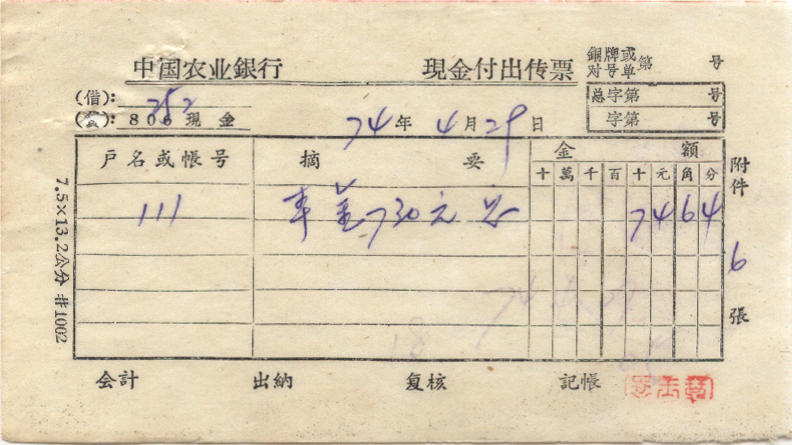 中国农业銀行 現金付出传票 銅牌或 第 号
对号单
(借): 252 总字第 号
(貸): 806 現金 字第 号
74 年 4 月 29 日
戶名或帳号 摘 要 金 額
十 萬 千 百 十 元 角 分
111 730元 7 4 6 4
附件 6 張
会計 出納 复核 記帳
7.5×13.2公分 #1002